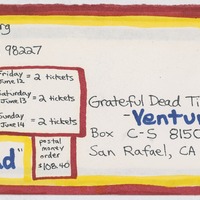 rg
98227
Friday June 12 = 2 tickets
Saturday June 13 = 2 tickets
Sunday June 14 = 2 tickets
postal
money
order
$108.40
d"
Grateful Dead Ti
-Ventur
Box C-S 8150
San Rafael, CA